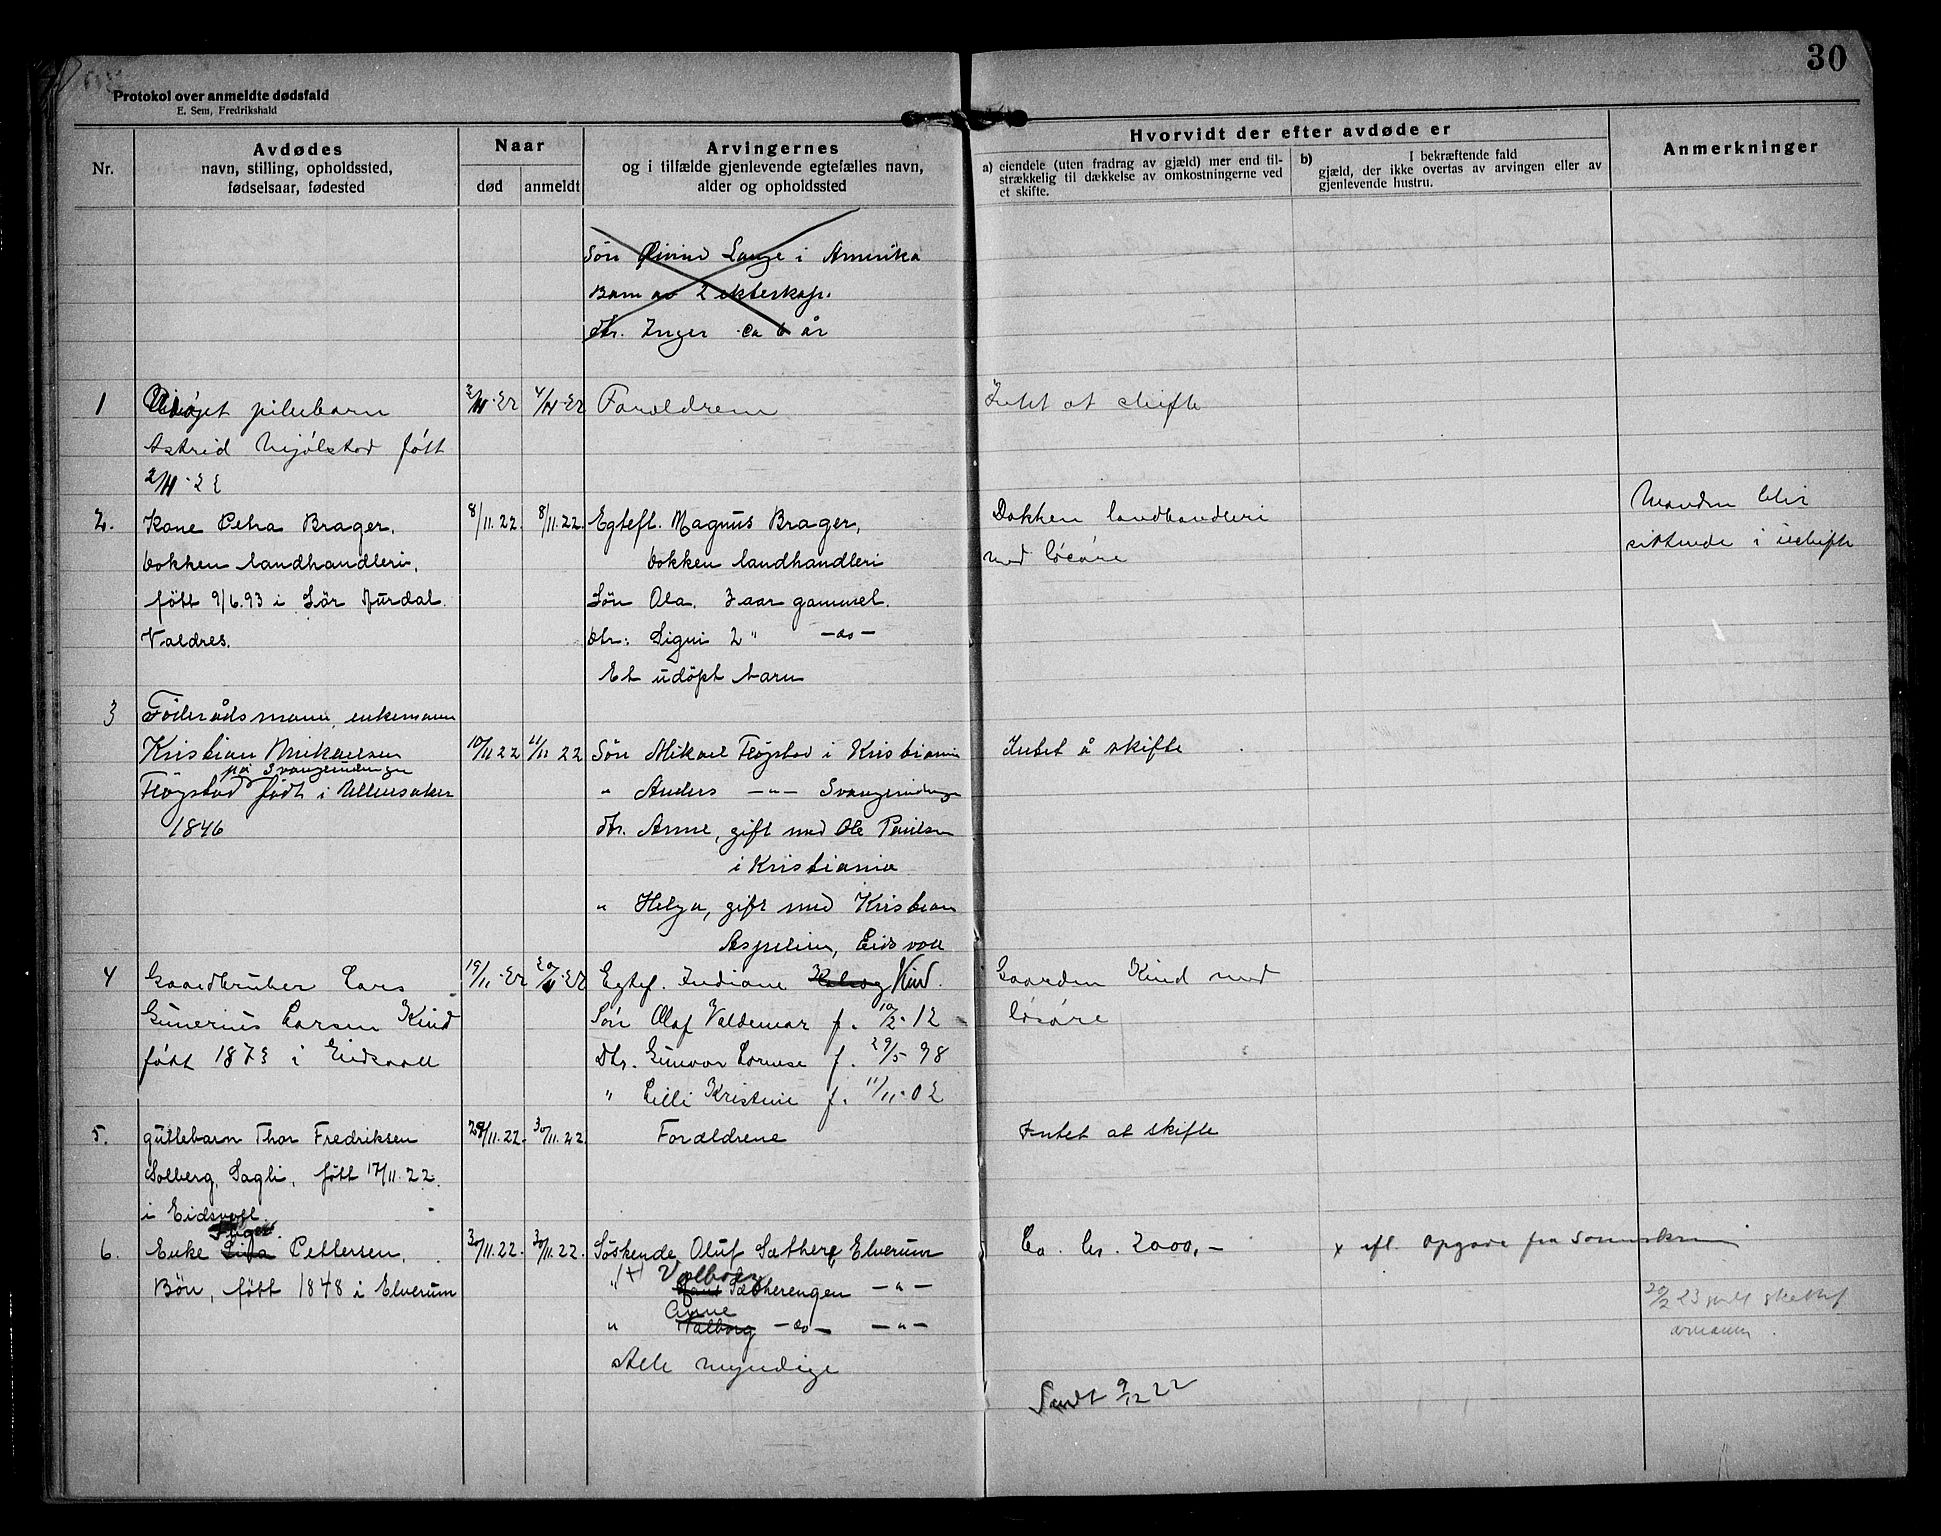 30
Protokol over anmeldte dødsfald
E. Sem, Fredrikshald
Nr.
Avdødes
navn, stilling, opholdssted,
fødselsaar, fødested
Naar
død
anmeldt
Arvingernes
og i tilfælde gjenlevende egtefælles navn,
alder og opholdssted
Hvorvidt der efter avdøde er
a) eiendele (uten fradrag av gjæld) mer end til-
strækkelig til dækkelse av omkostningerne ved
et skifte.
b) I bekræftende fald
gjæld, der ikke overtas av arvingen eller av
gjenlevende hustru.
Anmerkninger
Søn Øivind Lange i Amerika
Barn av 2 ekteskap.
dtr. Inger ca 6 år
1 Udøpt pikebarn 3/11-22 4/11-22 Forældrene Intet at skifte
Astrid Mjølstad født
2/11-22
2. Kone Petra Brager, 8/11.22. 8/11.22. Egtefl. Magnus Brager, Dokken landhandleri Manden blir
Dokken landhandleri, Dokken landhandleri med løsøre sittende i uskifte
født 9/6.93 i Sør Aurdal. Søn Ola. 3 aar gammel.
Valdres. Dtr: Signi 2 " -do-
Et udøpt barn
3 Føderådsmann, enkemann
Kristian Mikaelsen 10/11 22 11/11 22 Søn Mikael Fløgstad i Kristiania Intet å skifte
på Svangerudenga
Fløgstad født i Ullensaker " Anders -"- Svangerudenga
1846 dtr. Anne, gift med Ole Paulsen
i Kristiania
" Helga, gift med Kristian
Aspelien, Eidsvoll
4 Gaardbruker Lars 19/11-22 20/11-22 Egtef. Indiane Kind. Gaarden Kind med
Gunerius Larsen Kind Søn Olaf Valdemar f. 10/2-12 løsøre
født 1873 i Eidsvoll Dtr. Gunvor Lovise f. 29/5-98
" Lilli Kristine f. 11/11-02
5. guttebarn Thor Fredriksen 29/11.22. 30/11.22. Forældrene Intet at skifte
Solberg, Sagli, født 17/11.22.
i Eidsvoll.
6. Enke Pettersen, 30/11.22. 30/11.22. Søskende Oluf Sæthere Elverum Ca. kr. 2000,- x efl. opgave fra
Bøn, født 1848 i Elverum " (+) Valborg Sætherengen -"-
" Anne Valborg -do- -"-
Alle myndige
20/2 23
Sendt 9/12 22